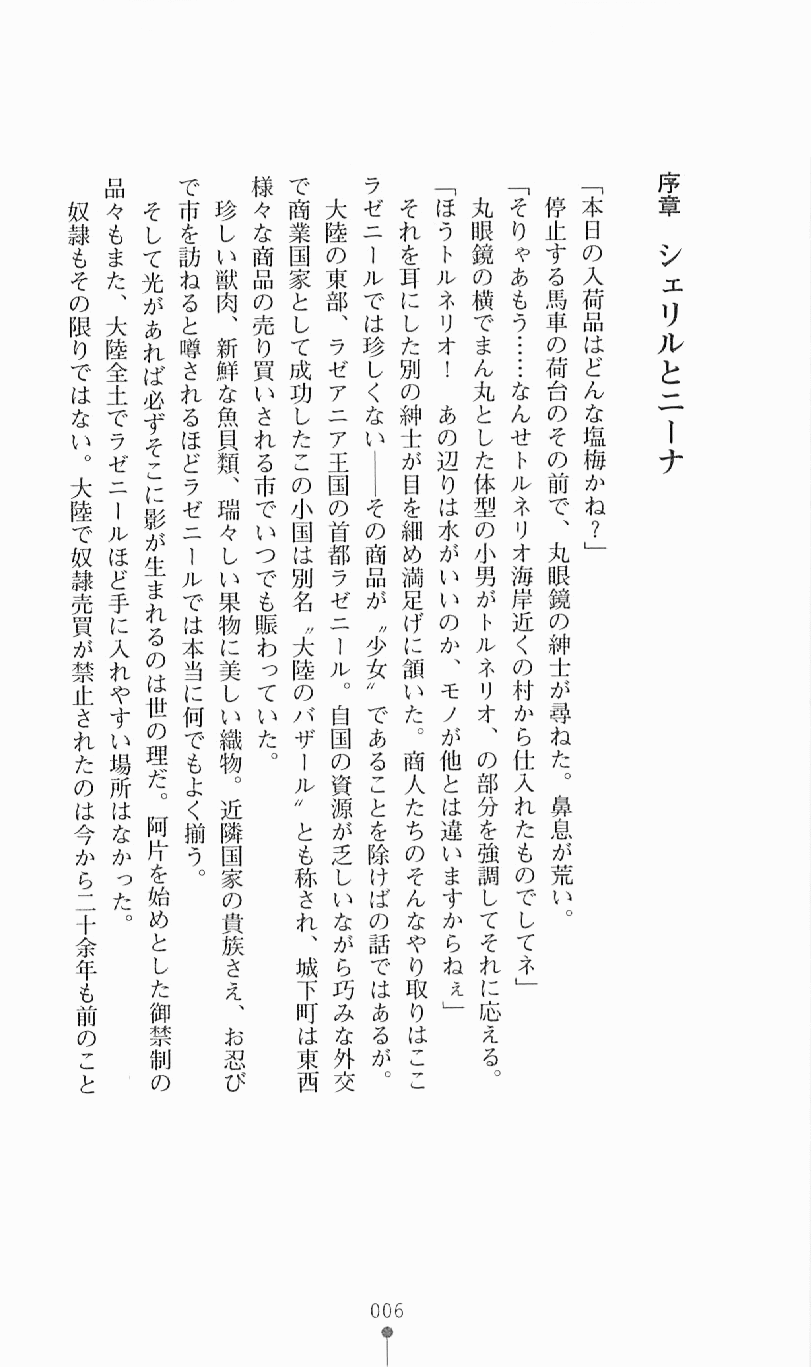 序章　シェリルとニーナ
「本日の入荷品はどんな塩梅かね？」
　停止する馬車の荷台のその前で、丸眼鏡の紳士が尋ねた。鼻息が荒い。
「そりゃあもう……なんせトルネリオ海岸近くの村から仕入れたものでしてネ」
　丸眼鏡の横でまん丸とした体型の小男がトルネリオ、の部分を強調してそれに応える。
「ほうトルネリオ！　あの辺りは水がいいのか、モノが他とは違いますからねぇ」
　それを耳にした別の紳士が目を細め満足げに頷いた。商人たちのそんなやり取りはここ
ラゼニールでは珍しくない――その商品が〝少女〟であることを除けばの話ではあるが。
　大陸の東部、ラゼアニア王国の首都ラゼニール。自国の資源が乏しいながら巧みな外交
で商業国家として成功したこの小国は別名〝大陸のバザール〟とも称され、城下町は東西
様々な商品の売り買いされる市でいつでも賑わっていた。
　珍しい獣肉、新鮮な魚貝類、瑞々しい果物に美しい織物。近隣国家の貴族さえ、お忍び
で市を訪ねると噂されるほどラゼニールでは本当に何でもよく揃う。
　そして光があれば必ずそこに影が生まれるのは世の理だ。阿片を始めとした御禁制の
品々もまた、大陸全土でラゼニールほど手に入れやすい場所はなかった。
　奴隷もその限りではない。大陸で奴隷売買が禁止されたのは今から二十余年も前のこと
006